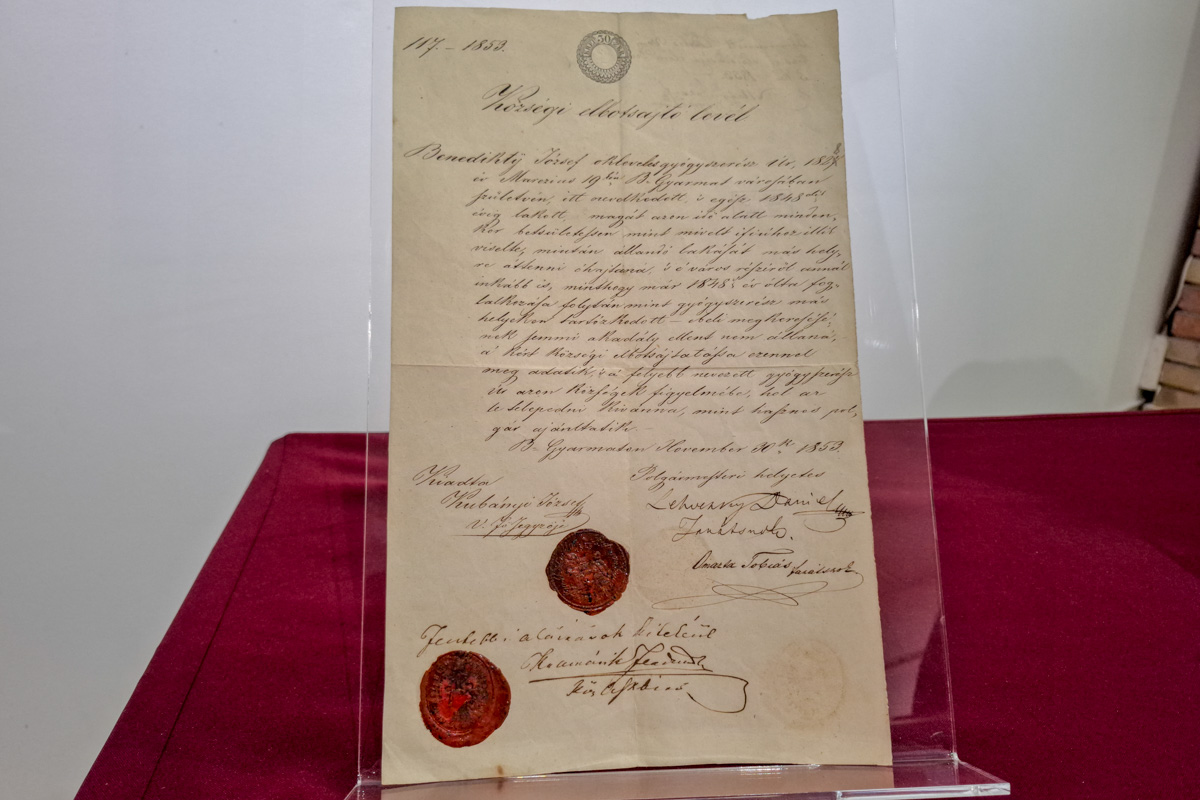 117. – 1853.
30
Községi elbotsájtó levél
Benedikty József okleveles gyógyszerész úr,
év Marczius 19kén B. Gyarmat városában
születvén, itt nevelkedett, s egész 1848dik
évig lakott, magát azon idő alatt minden,
kor betsületessen mint mivelt ifjúhoz illik
viselte, miután állandó lakását más hely,
re áttenni óhajtaná, s é város részéről annál
inkább is, minthogy már 1848k év ólta fog,
lalkozása folytán mint gyógyszerész más
helyeken tartózkodott – ebeli megkeresésé,
nek semmi akadály ellent nem állaná,
á kért községi elbotsájtatása ezennel
meg adatik, s á feljebb nevezett gyógyszerész
úr azon községek figyelmébe, hol
le telepedni kivánna, mint hasznos pol,
gár ajánltatik. –
B. Gyarmaton November 30k 1853.
Kiadta
Kubányi József
V. fő jegyző
Polgármesteri helyetes
Dániel
Tanátsnok.
Tobiás tanátsnok
Fentebbi aláirások hiteléül